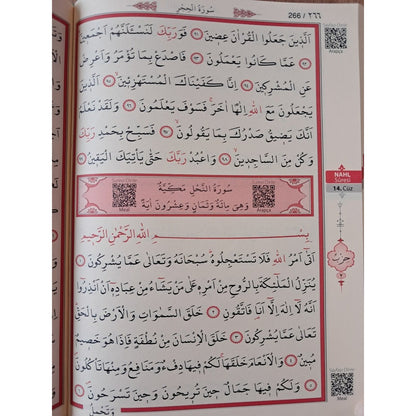 266 / ٢٦٦
سُورَةُ الْحِجْرِ
Sayfayı Dinle
Arapça
اَلَّذ۪ينَ جَعَلُوا الْقُرْاٰنَ عِض۪ينَ ﴿٩١﴾ فَوَرَبِّكَ لَنَسْـَٔلَنَّهُمْ اَجْمَع۪ينَ
﴿٩٢﴾ عَمَّا كَانُوا يَعْمَلُونَ ﴿٩٣﴾ فَاصْدَعْ بِمَا تُؤْمَرُ وَاَعْرِضْ
عَنِ الْمُشْرِك۪ينَ ﴿٩٤﴾ اِنَّا كَفَيْنَاكَ الْمُسْتَهْزِء۪ينَ ﴿٩٥﴾ اَلَّذ۪ينَ
يَجْعَلُونَ مَعَ اللّٰهِ اِلٰهًا اٰخَرَ فَسَوْفَ يَعْلَمُونَ ﴿٩٦﴾ وَلَقَدْ نَعْلَمُ
اَنَّكَ يَض۪يقُ صَدْرُكَ بِمَا يَقُولُونَ ﴿٩٧﴾ فَسَبِّحْ بِحَمْدِ رَبِّكَ
وَكُنْ مِنَ السَّاجِد۪ينَ ﴿٩٨﴾ وَاعْبُدْ رَبَّكَ حَتّٰى يَأْتِيَكَ الْيَق۪ينُ ﴿٩٩﴾
NAHL
Sûresi
14. Cüz
Meal
سُورَةُ النَّحْلِ مَكِّيَّةٌ
وَهِىَ مِائَةٌ وَثَمَانٍ وَعِشْرُونَ اٰيَةً
Arapça
بِسْمِ اللّٰهِ الرَّحْمٰنِ الرَّح۪يمِ
اَتٰٓى اَمْرُ اللّٰهِ فَلَا تَسْتَعْجِلُوهُ سُبْحَانَهُ وَتَعَالٰى عَمَّا يُشْرِكُونَ ﴿١﴾
يُنَزِّلُ الْمَلٰٓئِكَةَ بِالرُّوحِ مِنْ اَمْرِه۪ عَلٰى مَنْ يَشَٓاءُ مِنْ عِبَادِه۪ٓ اَنْ اَنْذِرُٓوا
اَنَّهُ لَٓا اِلٰهَ اِلَّٓا اَنَا۬ فَاتَّقُونِ ﴿٢﴾ خَلَقَ السَّمٰوَاتِ وَالْاَرْضَ بِالْحَقِّ
تَعَالٰى عَمَّا يُشْرِكُونَ ﴿٣﴾ خَلَقَ الْاِنْسَانَ مِنْ نُطْفَةٍ فَاِذَا هُوَ خَص۪يمٌ
مُب۪ينٌ ﴿٤﴾ وَالْاَنْعَامَ خَلَقَهَا لَكُمْ ف۪يهَا دِفْءٌ وَمَنَافِعُ وَمِنْهَا تَأْكُلُونَ
﴿٥﴾ وَلَكُمْ ف۪يهَا جَمَالٌ ح۪ينَ تُر۪يحُونَ وَح۪ينَ تَسْرَحُونَ ﴿٦﴾
وَتَحْمِلُ
Sayfayı Dinle
Meal